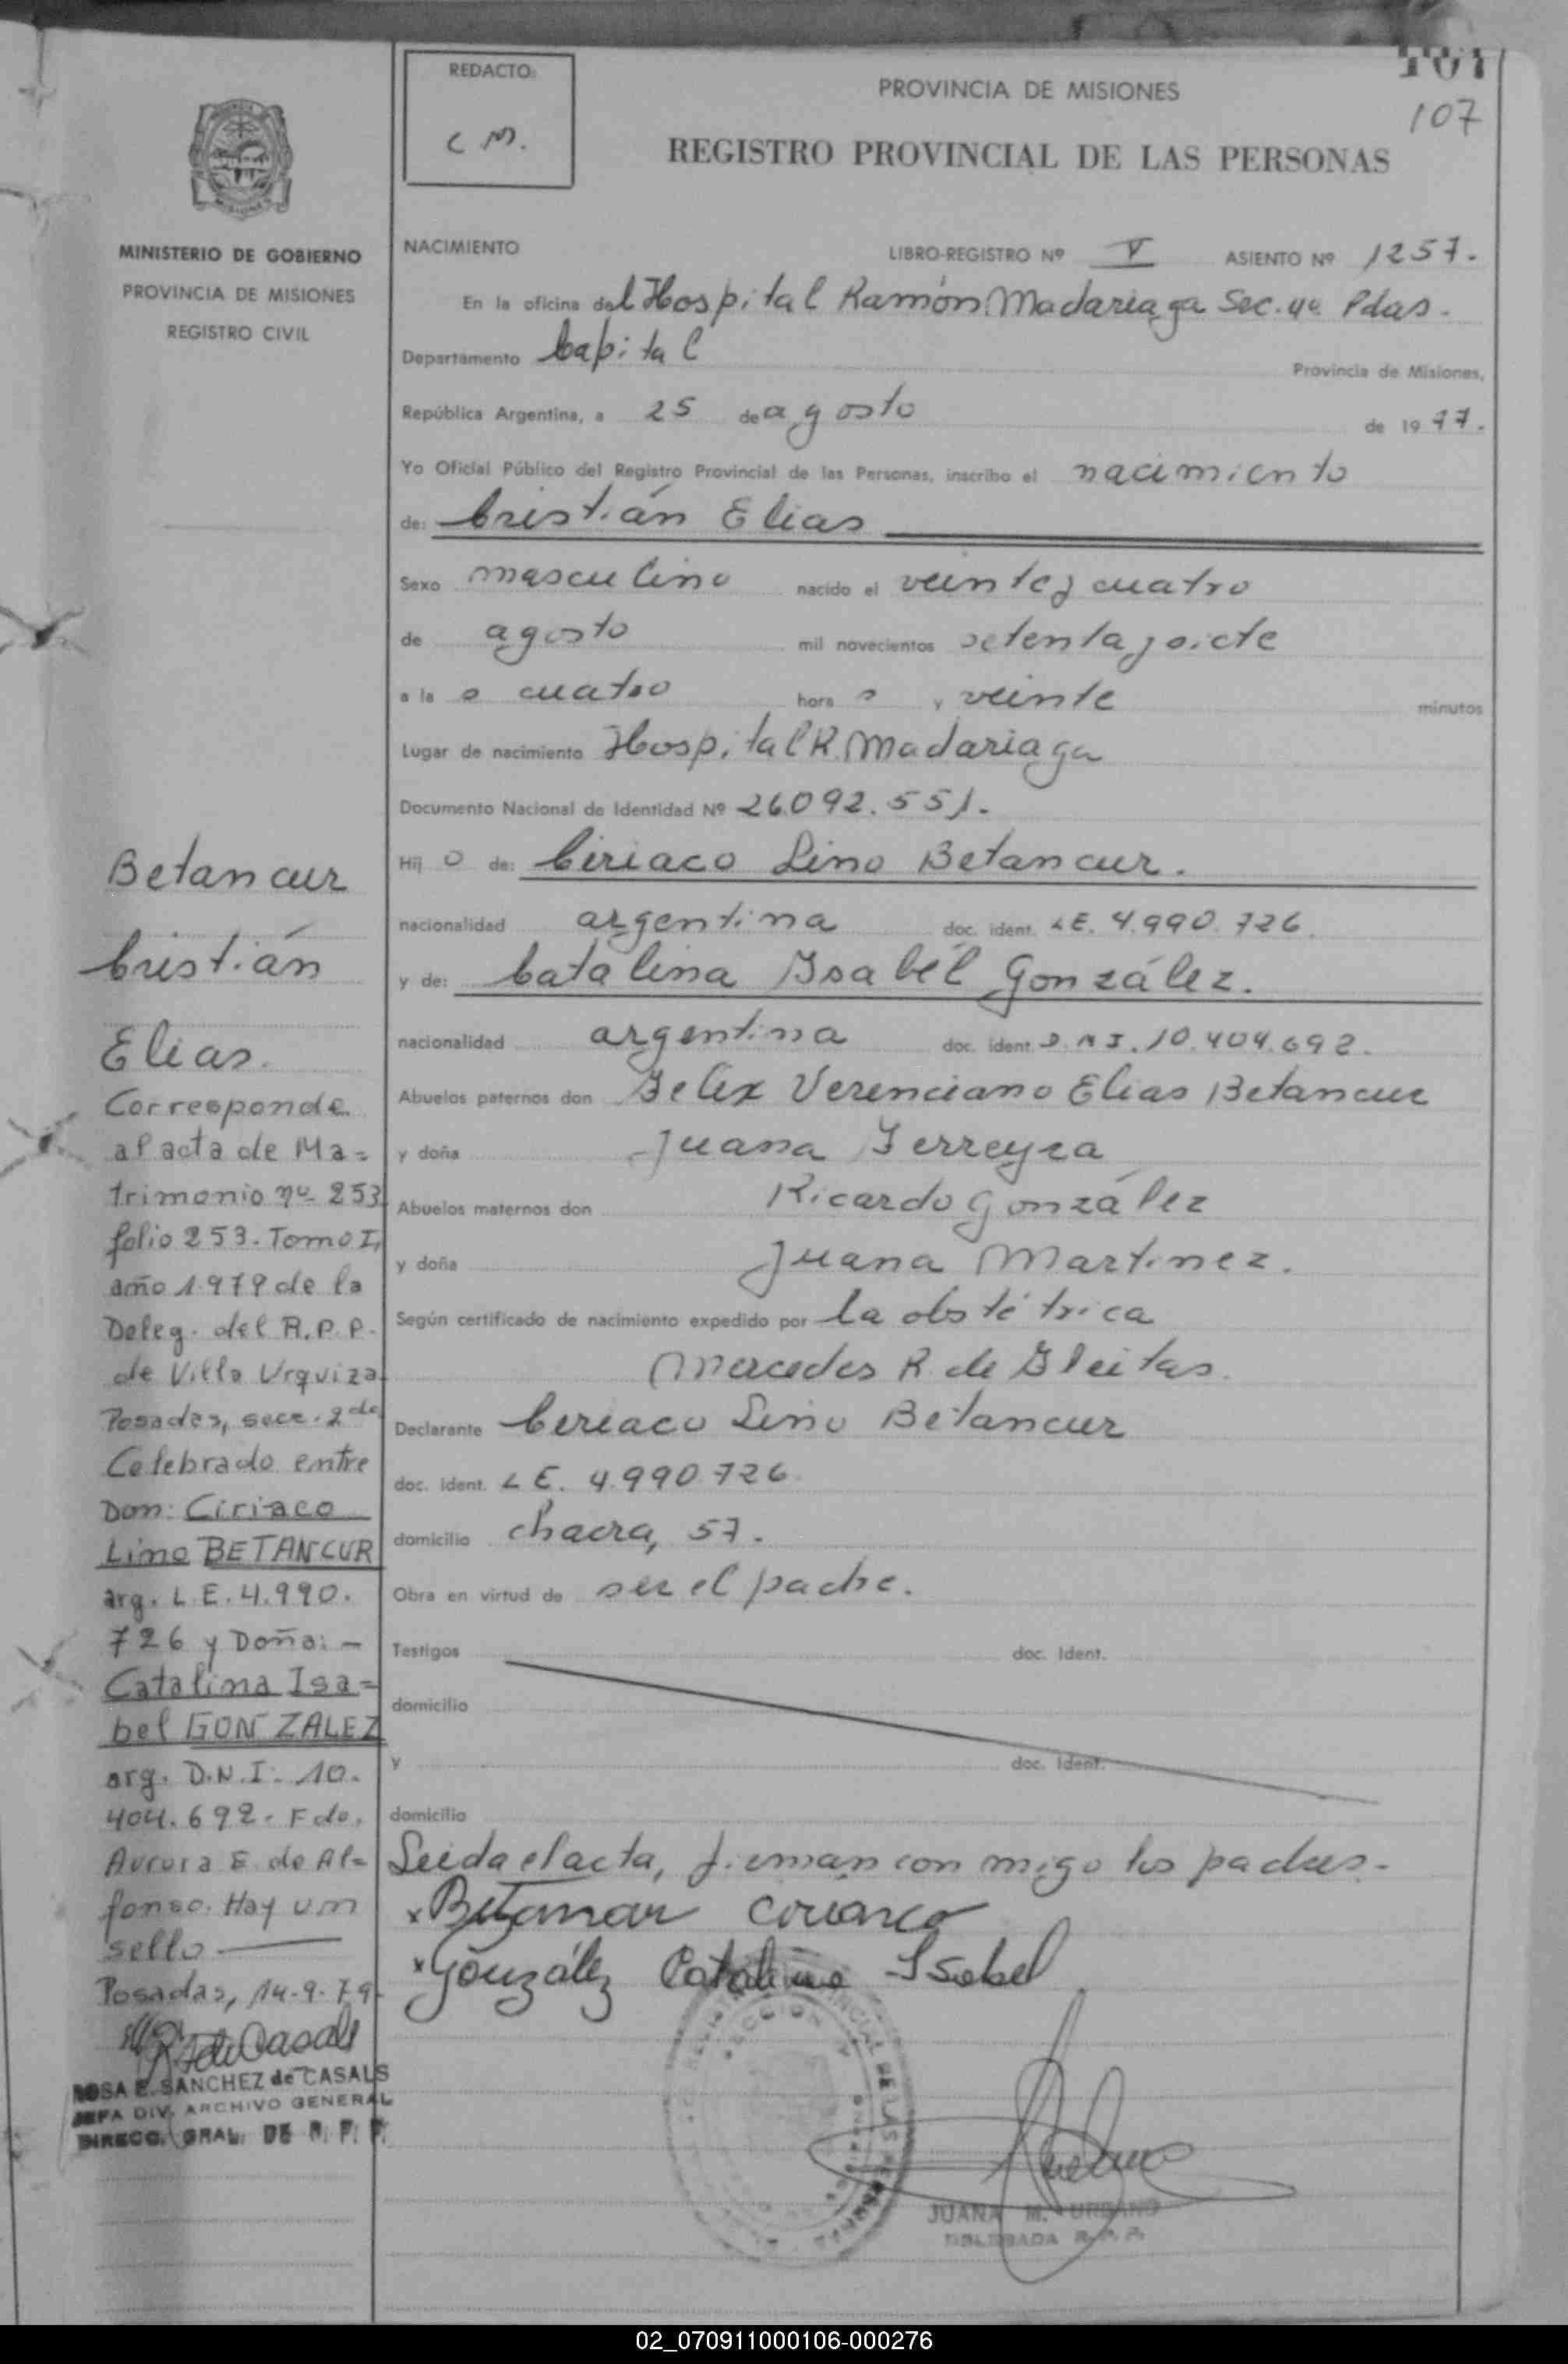 107
107
REDACTO:
C M.
PROVINCIA DE MISIONES
REGISTRO PROVINCIAL DE LAS PERSONAS
MINISTERIO DE GOBIERNO
PROVINCIA DE MISIONES
REGISTRO CIVIL
NACIMIENTO LIBRO-REGISTRO Nº V ASIENTO Nº 1257.
En la oficina del Hospital Ramón Madariaga Sec. 4ª Pdas.
Departamento Capital Provincia de Misiones,
República Argentina, a 25 de agosto de 1977.
Yo Oficial Público del Registro Provincial de las Personas, inscribo el nacimiento
de: Cristián Elias
Sexo masculino nacido el veintey cuatro
de agosto mil novecientos setenta y siete
a la s cuatro hora s y veinte minutos
Lugar de nacimiento Hospital R. Madariaga
Documento Nacional de Identidad Nº 26.092.551.
Hij o de: Ciriaco Lino Betancur.
nacionalidad argentina doc. ident. LE. 4.990.726.
y de: Catalina Ysabel González.
nacionalidad argentina doc. ident. D.N.I. 10.404.692.
Abuelos paternos don Felix Verenciano Elias Betancur
y doña Juana Ferreyra
Abuelos maternos don Ricardo González
y doña Juana Martinez.
Según certificado de nacimiento expedido por la obstétrica
Mercedes R. de Fleitas.
Declarante Ceriaco Lino Betancur
doc. ident. L E. 4.990.726.
domicilio chacra, 57.
Obra en virtud de ser el padre.
Testigos doc. Ident.
domicilio
y doc. Ident.
domicilio
Leida el acta, firman con migo los padres.
x Betancur Ciriaco
x González Catalina Isabel
JUANA M. URBANO
DELEGADA R.P.P.
Betancur
Cristián
Elias.
Corresponde
al acta de Ma=
trimonio nº 253
folio 253. Tomo I,
año 1.979 de la
Deleg. del R.P.P.
de Villa Urquiza
Posadas, secc. 2da
Celebrado entre
Don: Ciriaco
Lino BETANCUR
arg. L.E. 4.990.
726 y Doña: -
Catalina Isa=
bel GONZALEZ
arg. D.N.I. 10.
404.692. Fdo.
Aurora E. de Al=
fonso. Hay un
sello
Posadas, 14-9-79
ROSA E. SANCHEZ de CASALS
JEFA DIV. ARCHIVO GENERAL
DIRECC. GRAL. DE R. P. P.
02_070911000106-000276